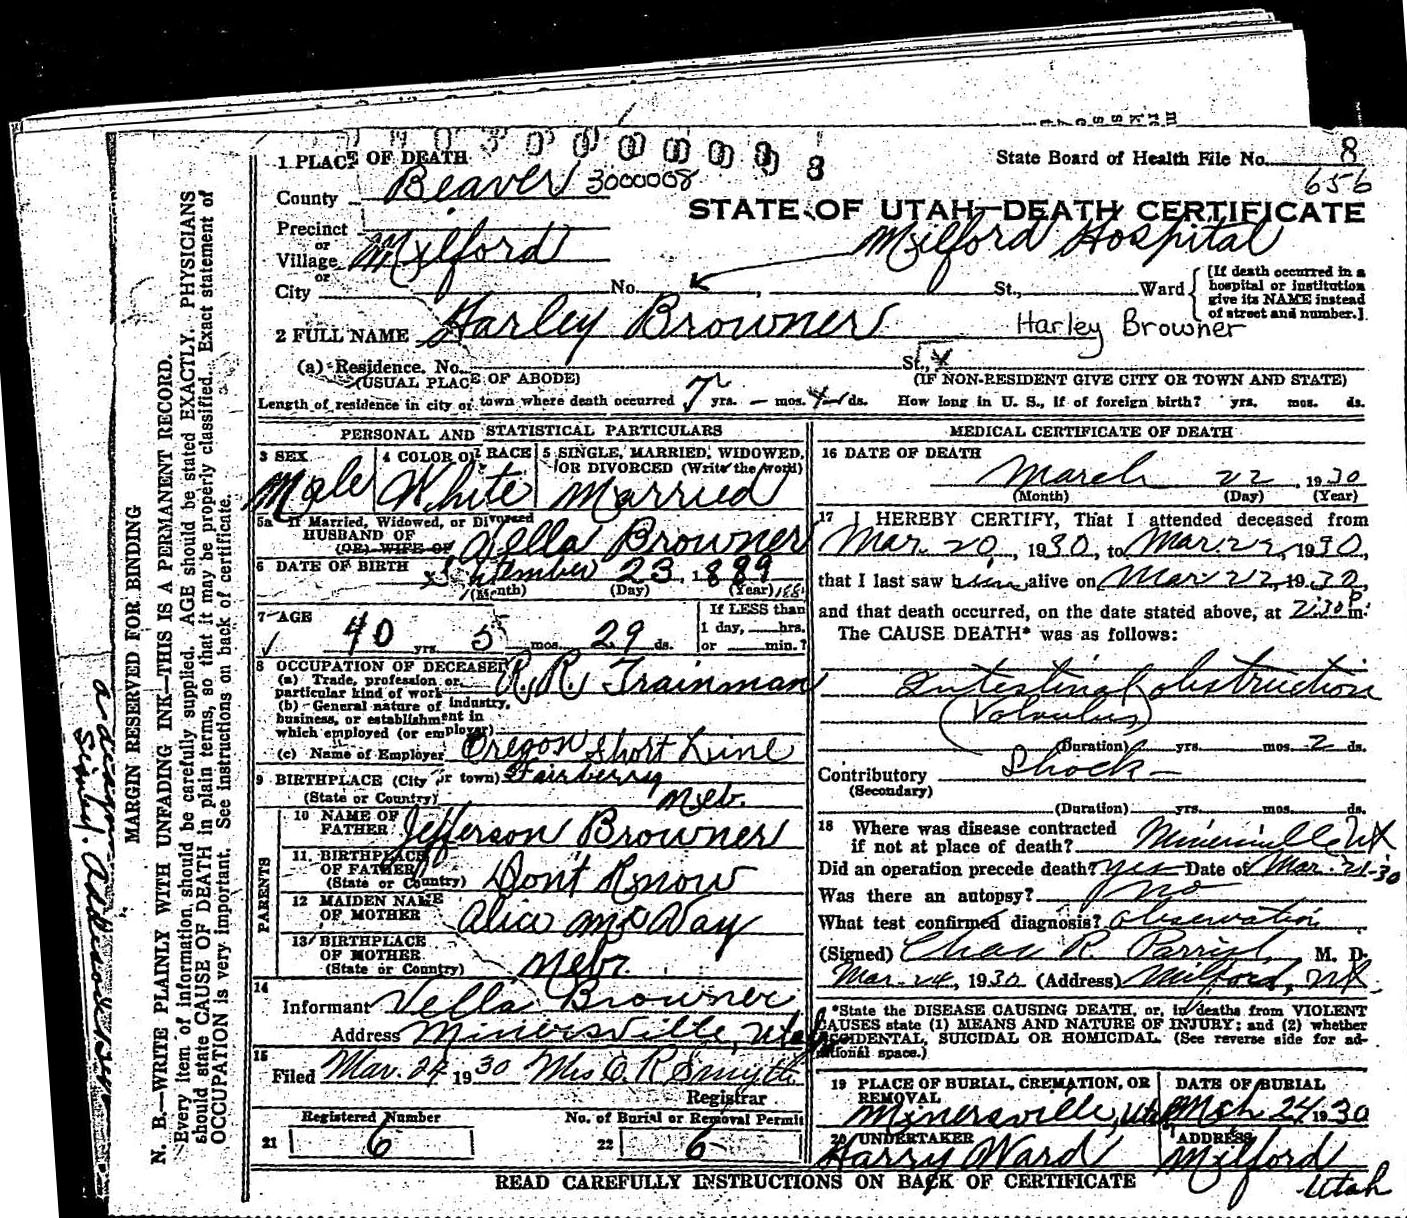 1 PLACE OF DEATH
State Board of Health File No. 8
656
County Beaver 3000008
STATE OF UTAH—DEATH CERTIFICATE
Precinct
or
Village Milford
Milford Hospital
or
City No. , St., Ward
[If death occurred in a
hospital or institution
give its NAME instead
of street and number.]
2 FULL NAME Harley Browner Harley Browner
(a) Residence. No. St.,
(USUAL PLACE OF ABODE) (IF NON-RESIDENT GIVE CITY OR TOWN AND STATE)
Length of residence in city or town where death occurred 7 yrs. — mos. ds. How long in U. S., if of foreign birth? yrs. mos. ds.
PERSONAL AND STATISTICAL PARTICULARS
3 SEX
Male
4 COLOR OR RACE
White
5 SINGLE, MARRIED, WIDOWED,
OR DIVORCED (Write the word)
Married
5a If Married, Widowed, or Divorced
HUSBAND OF
(OR) WIFE OF Vella Browner
6 DATE OF BIRTH September 23, 1889
(Month) (Day) (Year)
7 AGE
40 yrs. 5 mos. 29 ds.
If LESS than
1 day, hrs.
or min.?
8 OCCUPATION OF DECEASED
(a) Trade, profession or
particular kind of work R. R. Trainman
(b) General nature of industry,
business, or establishment in
which employed (or employer)
(c) Name of Employer Oregon Short Line
9 BIRTHPLACE (City or town) Fairberry
(State or Country) Neb.
PARENTS
10 NAME OF
FATHER Jefferson Browner
11 BIRTHPLACE
OF FATHER
(State or Country) Dont Know
12 MAIDEN NAME
OF MOTHER Alice McVay
13 BIRTHPLACE
OF MOTHER
(State or Country) Nebr.
14
Informant Vella Browner
Address Minersville, Utah
15
Filed Mar. 24 1930 Mrs O. R. Smyth
Registrar
Registered Number
21 6
No. of Burial or Removal Permit
22 6
MEDICAL CERTIFICATE OF DEATH
16 DATE OF DEATH
March 22, 1930
(Month) (Day) (Year)
17 I HEREBY CERTIFY, That I attended deceased from
Mar. 20, 1930, to Mar. 22, 1930,
that I last saw him alive on Mar 22, 1930,
and that death occurred, on the date stated above, at 2:30 P m.
The CAUSE DEATH* was as follows:
Intestinal obstruction
(Volvulus)
(Duration) yrs. mos. 2 ds.
Contributory Shock —
(Secondary)
(Duration) yrs. mos. ds.
18 Where was disease contracted
if not at place of death? Minersville Ut
Did an operation precede death? yes Date of Mar. 21-30
Was there an autopsy? no
What test confirmed diagnosis? observation
(Signed) Chas R. Parrish, M. D.
Mar. 24, 1930 (Address) Milford, Ut.
*State the DISEASE CAUSING DEATH, or, in deaths from VIOLENT
CAUSES state (1) MEANS AND NATURE OF INJURY; and (2) whether
ACCIDENTAL, SUICIDAL OR HOMICIDAL. (See reverse side for ad-
ditional space.)
19 PLACE OF BURIAL, CREMATION, OR
REMOVAL
Minersville, Utah
DATE OF BURIAL
Mch 24 1930
20 UNDERTAKER
Harry Ward
ADDRESS
Milford
Utah
READ CAREFULLY INSTRUCTIONS ON BACK OF CERTIFICATE
MARGIN RESERVED FOR BINDING
N. B.—WRITE PLAINLY WITH UNFADING INK—THIS IS A PERMANENT RECORD.
Every item of information should be carefully supplied. AGE should be stated EXACTLY. PHYSICIANS
should state CAUSE OF DEATH in plain terms, so that it may be properly classified. Exact statement of
OCCUPATION is very important. See instructions on back of certificate.